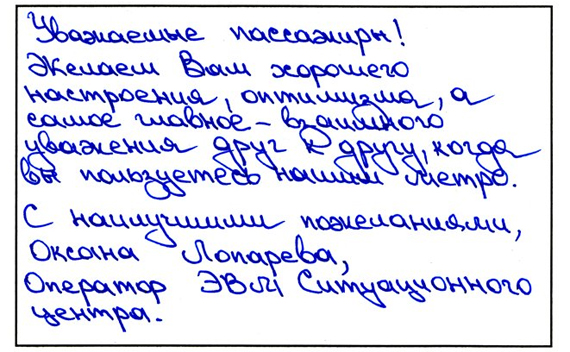 Уважаемые пассажиры!
Желаем Вам хорошего
настроения, оптимизма, а
самое главное – взаимного
уважения друг к другу, когда
вы пользуетесь нашим метро.
С наилучшими пожеланиями,
Оксана Лопарева,
Оператор ЭВМ Ситуационного
центра.